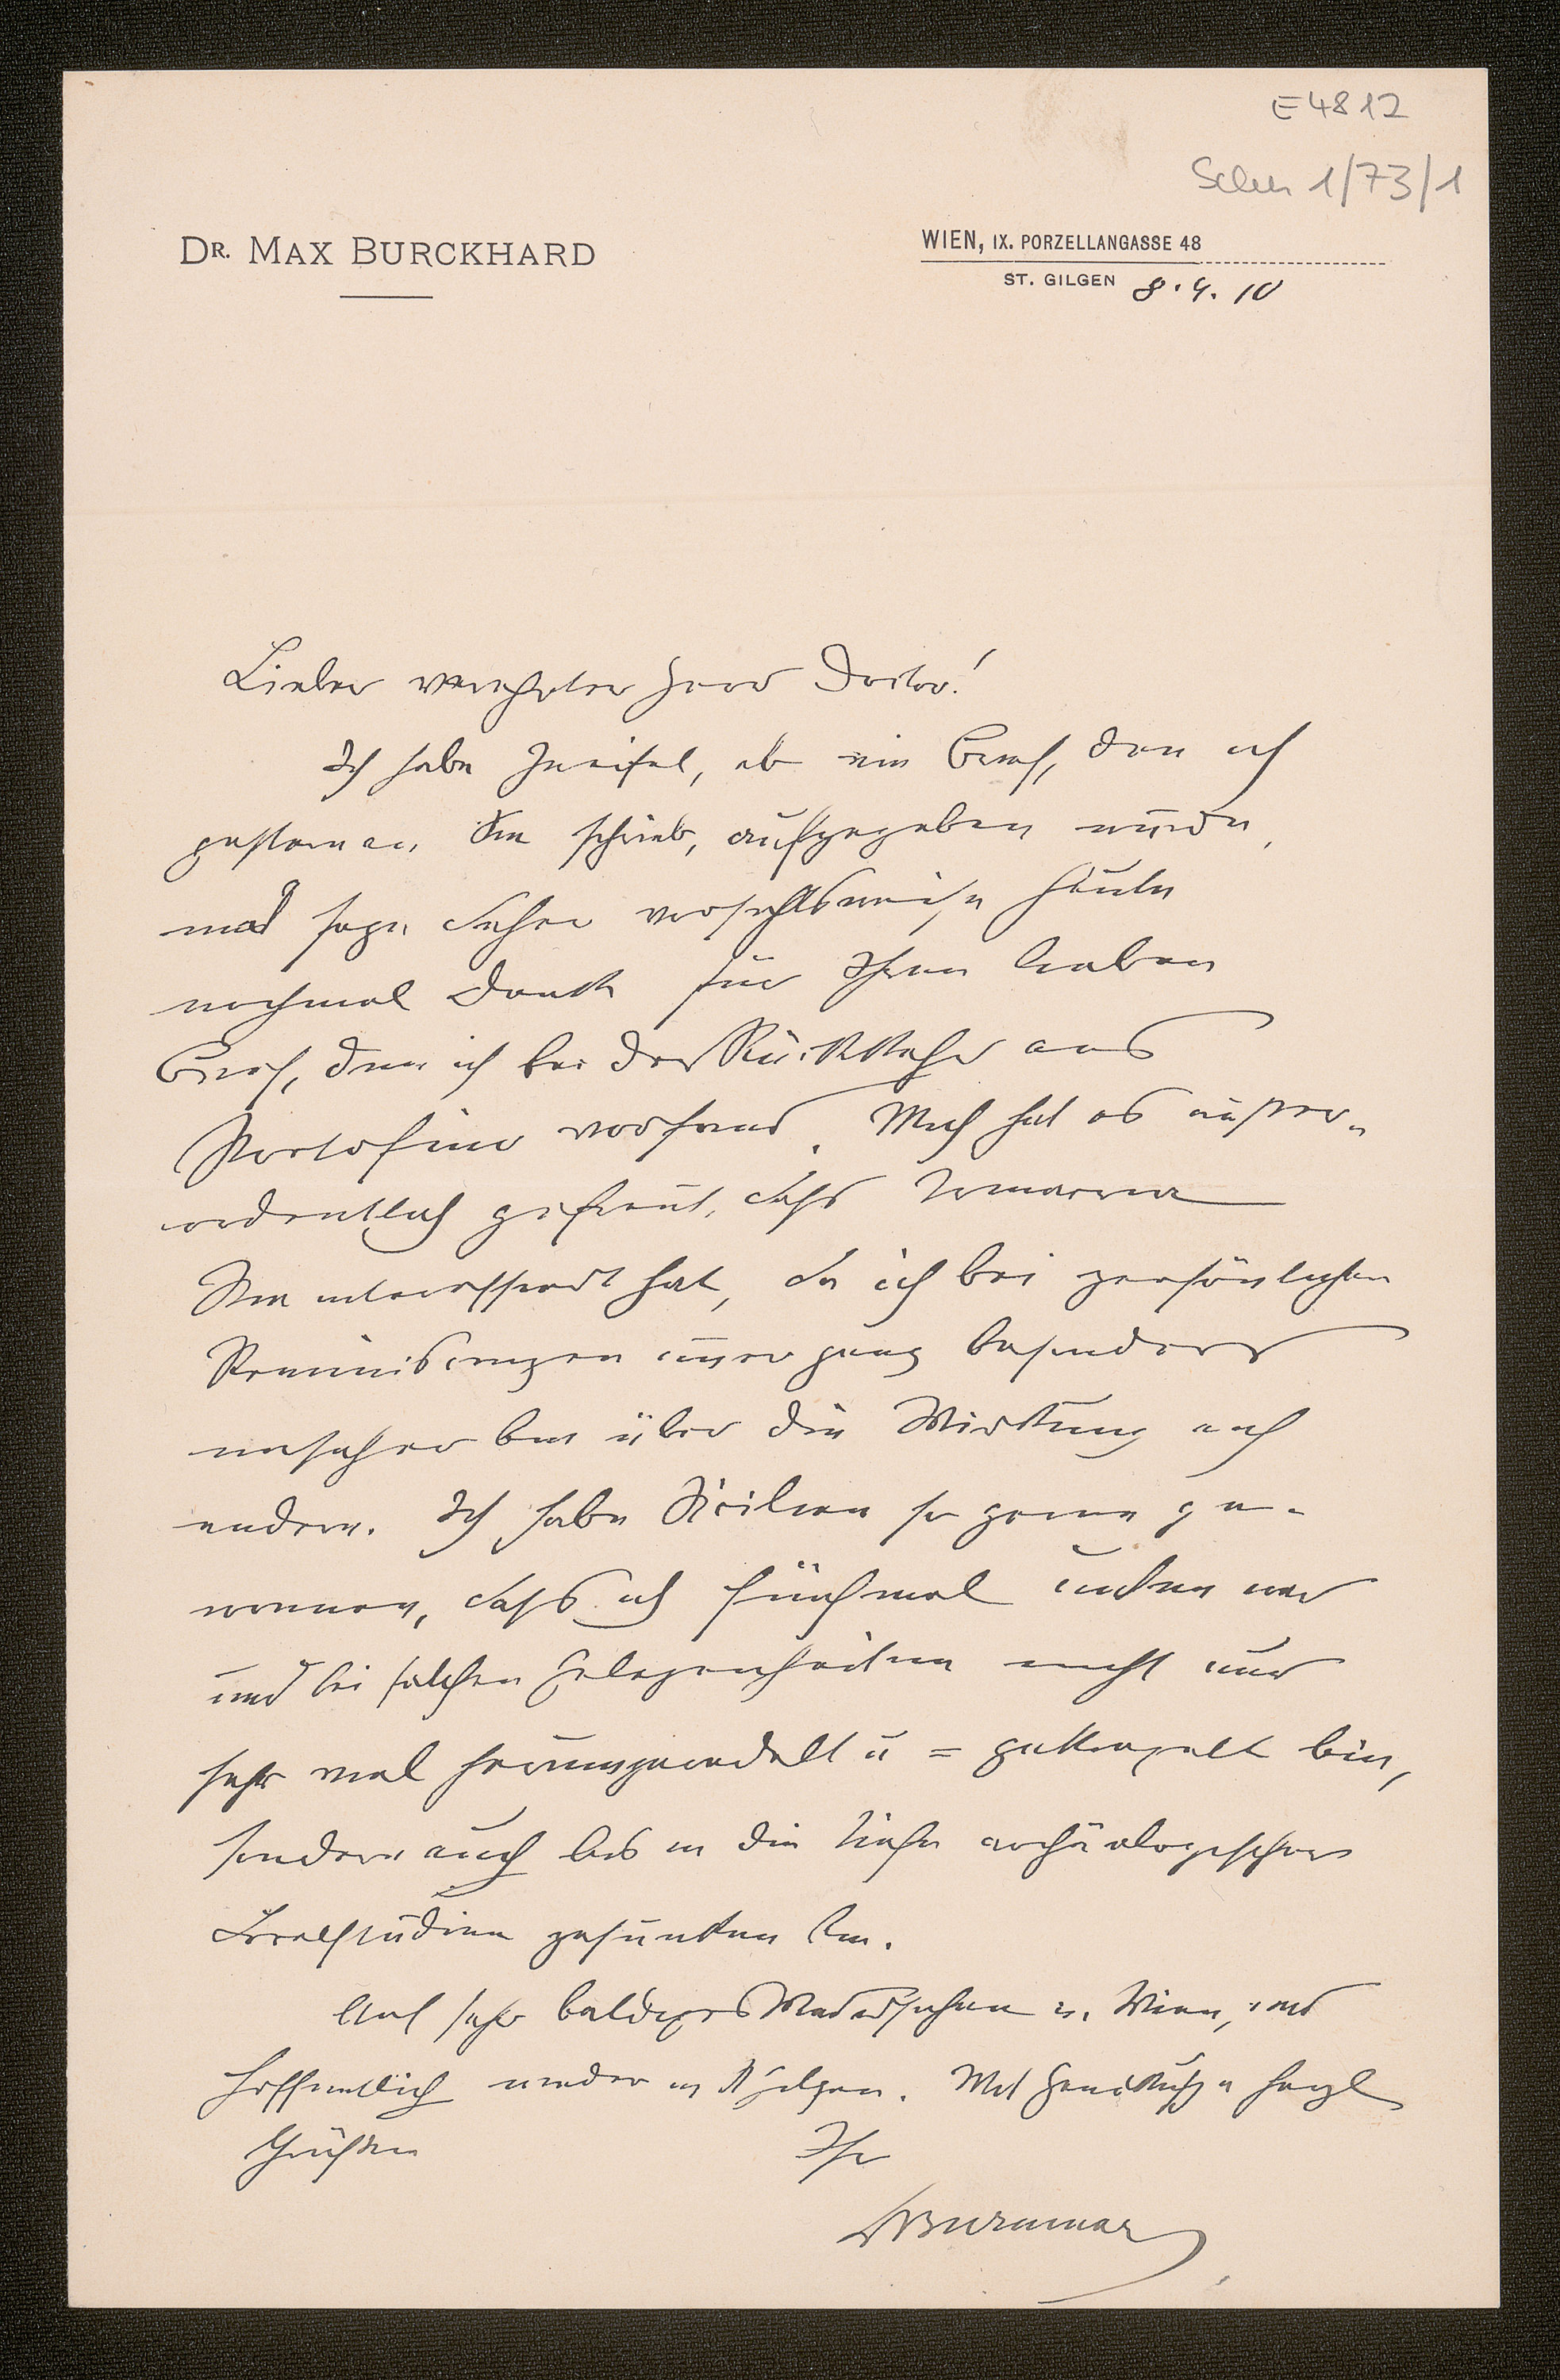 E4812
Schn 1/73/1
DR. MAX BURCKHARD
WIEN, IX. PORZELLANGASSE 48
ST. GILGEN 8.4.10
Lieber verehrter Herr Doctor!
Ich habe Zweifel, ob ein Brief, den ich
gestern an Sie schrieb, aufgegeben wurde,
und sage daher vorsichtsweise heute
nochmal Dank für Ihren lieben
Brief, den ich bei der Rückkehr aus
Portofino vorfand. Mich hat es außer-
ordentlich gefreut, dass
Sie interessiert hat, da ich bei persönlichen
Reminiscenzen immer ganz besonders
unsicher bin über die Wirkung auf
andere. Ich habe Sicilien so gerne ge-
wonnen, dass ich fünfmal unten war
und bei solchen Gelegenheiten nicht nur
sehr viel herumgeradelt u = gekraxelt bin,
sondern auch bis in die Tiefe archäologischer
Localstudien gesunken bin.
Auf sehr baldiges Wiedersehen in Wien, und
hoffentlich wieder in St Gilgen. Mit Handkuss u herzl
Grüßen Ihr
Burckhard